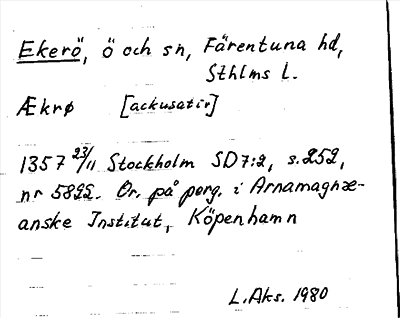 Ekerö, ö och sn, Färentuna hd,
Sthlms L.
Ækrø [ackusativ]
1357 23/11 Stockholm SD7:2, s. 252,
nr 5822. Or. på perg. i Arnamagnæ-
anske Institut, Köpenhamn
L. Aks. 1980